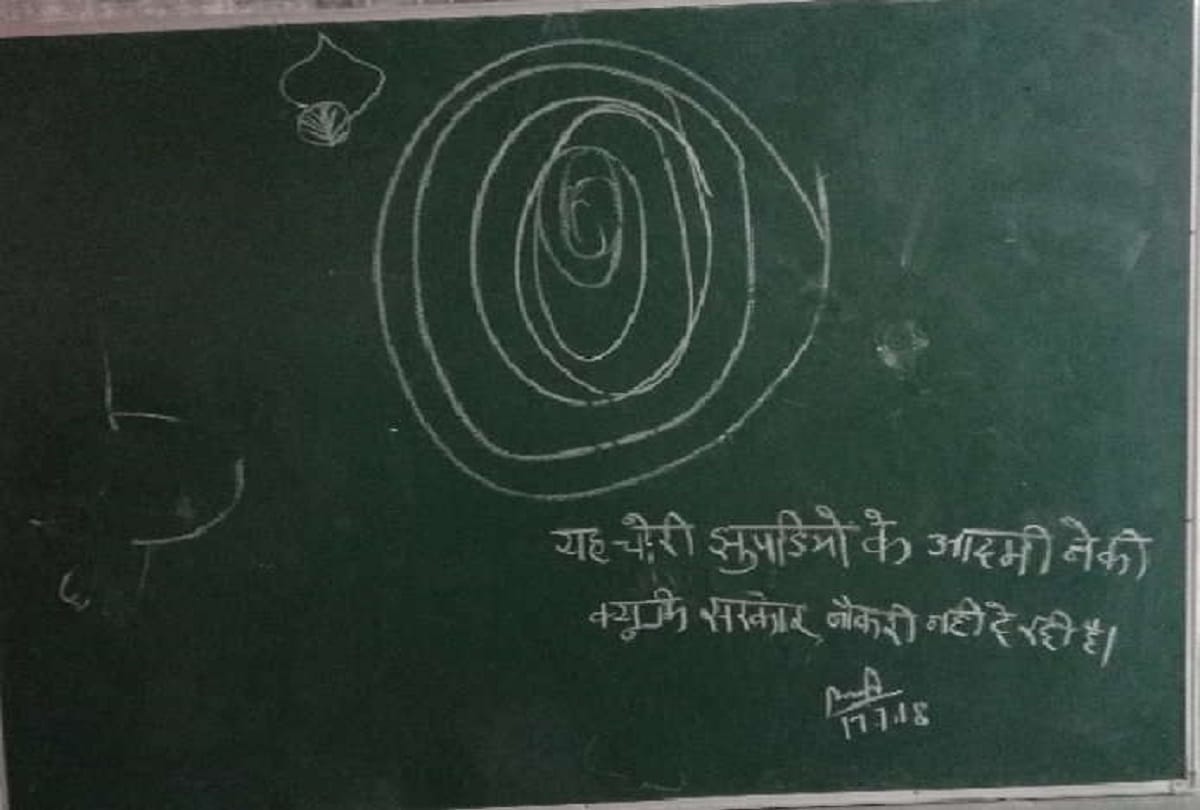 यह चोरी झुपडियो के आदमी नेकी
क्युकि सरकार नौकरी नही दे रही है।
17.7.18